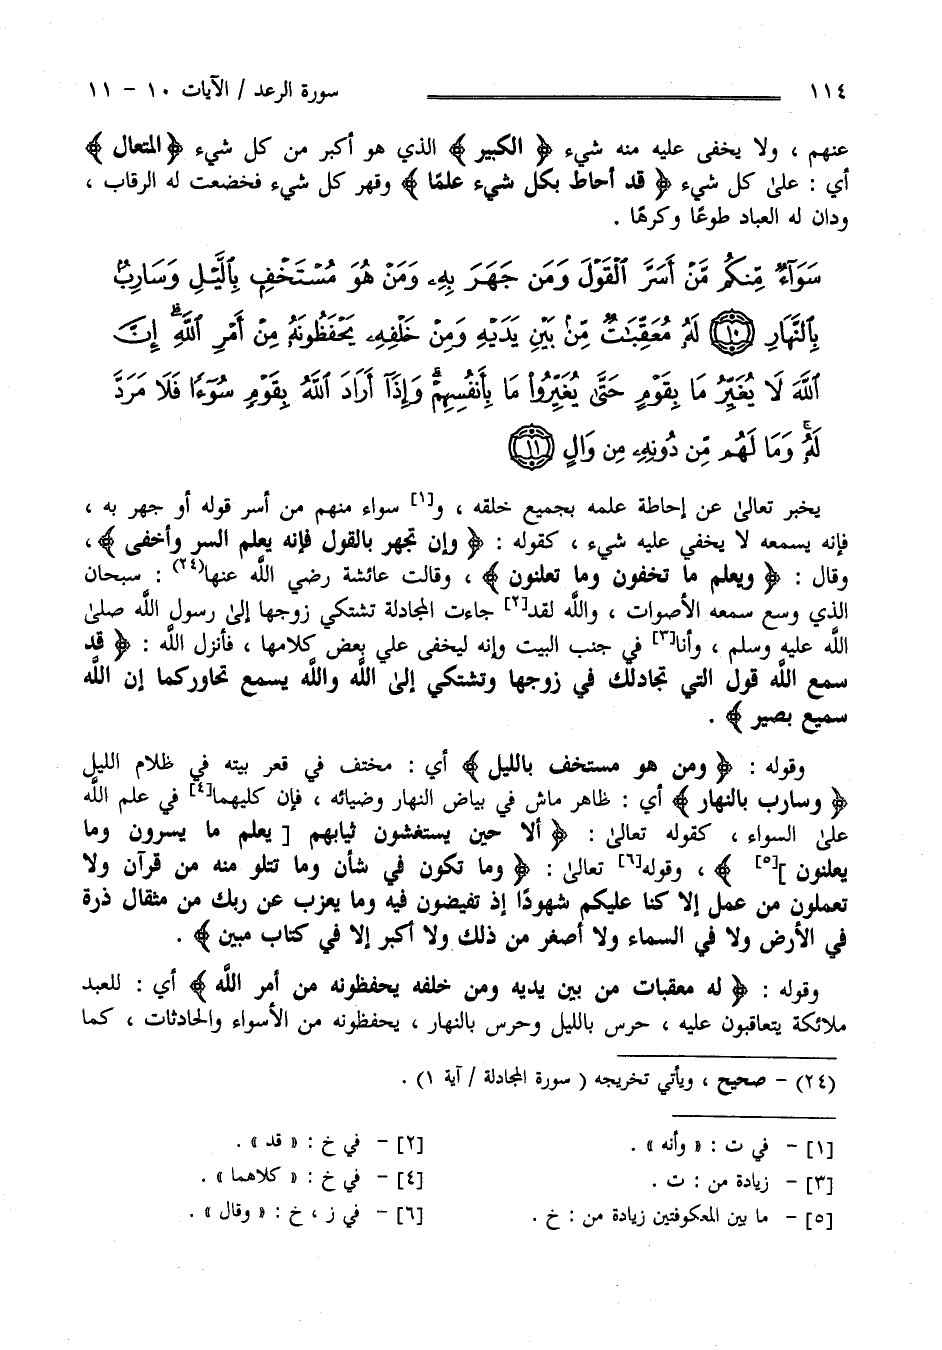 ١١٤ سورة الرعد / الآيات ١٠ - ١١
عنهم ، ولا يخفى عليه منه شيء ﴿ الكبير ﴾ الذي هو أكبر من كل شيء ﴿ المتعال ﴾
أي : علىٰ كل شيء ﴿ قد أحاط بكل شيء علمًا ﴾ وقهر كل شيء فخضعت له الرقاب ،
ودان له العباد طوعًا وكرهًا .
سَوَآءٌ مِّنكُم مَّنْ أَسَرَّ ٱلْقَوْلَ وَمَن جَهَرَ بِهِۦ وَمَنْ هُوَ مُسْتَخْفٍۭ بِٱلَّيْلِ وَسَارِبٌۢ
بِٱلنَّهَارِ ١٠ لَهُۥ مُعَقِّبَٰتٌ مِّنۢ بَيْنِ يَدَيْهِ وَمِنْ خَلْفِهِۦ يَحْفَظُونَهُۥ مِنْ أَمْرِ ٱللَّهِۗ إِنَّ
ٱللَّهَ لَا يُغَيِّرُ مَا بِقَوْمٍ حَتَّىٰ يُغَيِّرُوا۟ مَا بِأَنفُسِهِمْۗ وَإِذَآ أَرَادَ ٱللَّهُ بِقَوْمٍ سُوٓءًا فَلَا مَرَدَّ
لَهُۥۚ وَمَا لَهُم مِّن دُونِهِۦ مِن وَالٍ ١١
يخبر تعالىٰ عن إحاطة علمه بجميع خلقه ، و[١] سواء منهم من أسر قوله أو جهر به ،
فإنه يسمعه لا يخفي عليه شيء ، كقوله : ﴿ وإن تجهر بالقول فإنه يعلم السر وأخفى ﴾ ،
وقال : ﴿ ويعلم ما تخفون وما تعلنون ﴾ ، وقالت عائشة رضي الله عنها(٢٤) : سبحان
الذي وسع سمعه الأصوات ، والله لقد[٢] جاءت المجادلة تشتكي زوجها إلىٰ رسول الله صلىٰ
الله عليه وسلم ، وأنا[٣] في جنب البيت وإنه ليخفى علي بعض كلامها ، فأنزل الله : ﴿ قد
سمع الله قول التي تجادلك في زوجها وتشتكي إلىٰ الله والله يسمع تحاوركما إن الله
سميع بصير ﴾ .
وقوله : ﴿ ومن هو مستخف بالليل ﴾ أي : مختف في قعر بيته في ظلام الليل
﴿ وسارب بالنهار ﴾ أي : ظاهر ماش في بياض النهار وضيائه ، فإن كليهما[٤] في علم الله
علىٰ السواء ، كقوله تعالىٰ : ﴿ ألا حين يستغشون ثيابهم [ يعلم ما يسرون وما
يعلنون ][٥] ﴾ ، وقوله[٦] تعالىٰ : ﴿ وما تكون في شأن وما تتلو منه من قرآن ولا
تعملون من عمل إلا كنا عليكم شهودًا إذ تفيضون فيه وما يعزب عن ربك من مثقال ذرة
في الأرض ولا في السماء ولا أصغر من ذلك ولا أكبر إلا في كتاب مبين ﴾ .
وقوله : ﴿ له معقبات من بين يديه ومن خلفه يحفظونه من أمر الله ﴾ أي : للعبد
ملائكة يتعاقبون عليه ، حرس بالليل وحرس بالنهار ، يحفظونه من الأسواء والحادثات ، كما
(٢٤) - صحيح ، ويأتي تخريجه ( سورة المجادلة / آية ١) .
[١] - في ت : « وأنه » . [٢] - في خ : « قد » .
[٣] - زيادة من : ت . [٤] - في خ : « كلاهما » .
[٥] - ما بين المعكوفتين زيادة من : خ . [٦] - في ز ، خ : « وقال » .